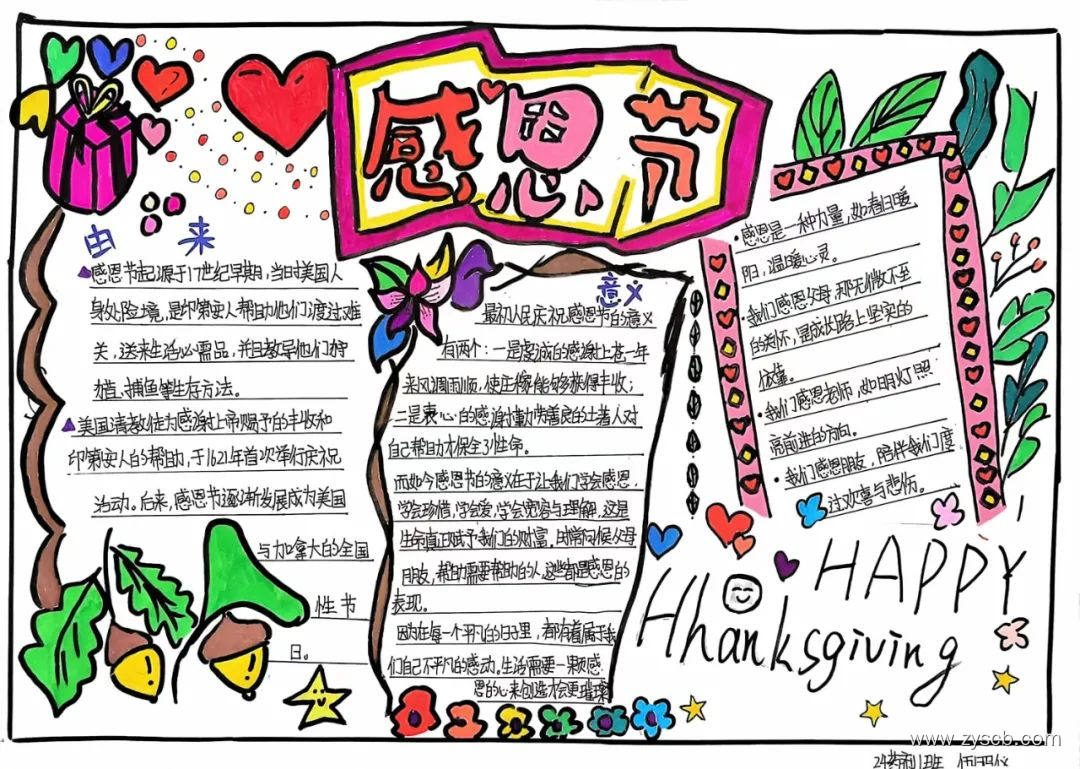 感恩节
由来
感恩节起源于17世纪早期，当时美国人
身处险境，是印第安人帮助他们渡过难
关，送来生活必需品，并且教导他们狩
猎、捕鱼等生存方法。
美国清教徒为感谢上帝赐予的丰收和
印第安人的帮助，于1621年首次举行庆祝
活动。后来，感恩节逐渐发展成为美国
与加拿大的全国
性节
日。
意义
最初人民庆祝感恩节的意义
有两个：一是虔诚的感谢上苍一年
来风调雨顺，使庄稼能够获得丰收；
二是衷心的感谢勤劳善良的土著人对
自己帮助才保全了性命。
而如今感恩节的意义在于让我们学会感恩，
学会珍惜，学会爱，学会宽容与理解，这是
生命真正赋予我们的财富。时常问候父母
朋友，帮助需要帮助的人，这些都是感恩的
表现。
因为在每一个平凡的日子里，都有着属于我
们自己不平凡的感动。生活需要一颗感
恩的心来创造才会更璀璨
感恩是一种力量，如春日暖
阳，温暖心灵。
我们感恩父母，那无微不至
的关怀，是成长路上坚实的
依靠。
我们感恩老师，如明灯照
亮前进的方向。
我们感恩朋友，陪伴我们度
过欢喜与悲伤。
HAPPY
Hhanksgiving
www.zyscb.com